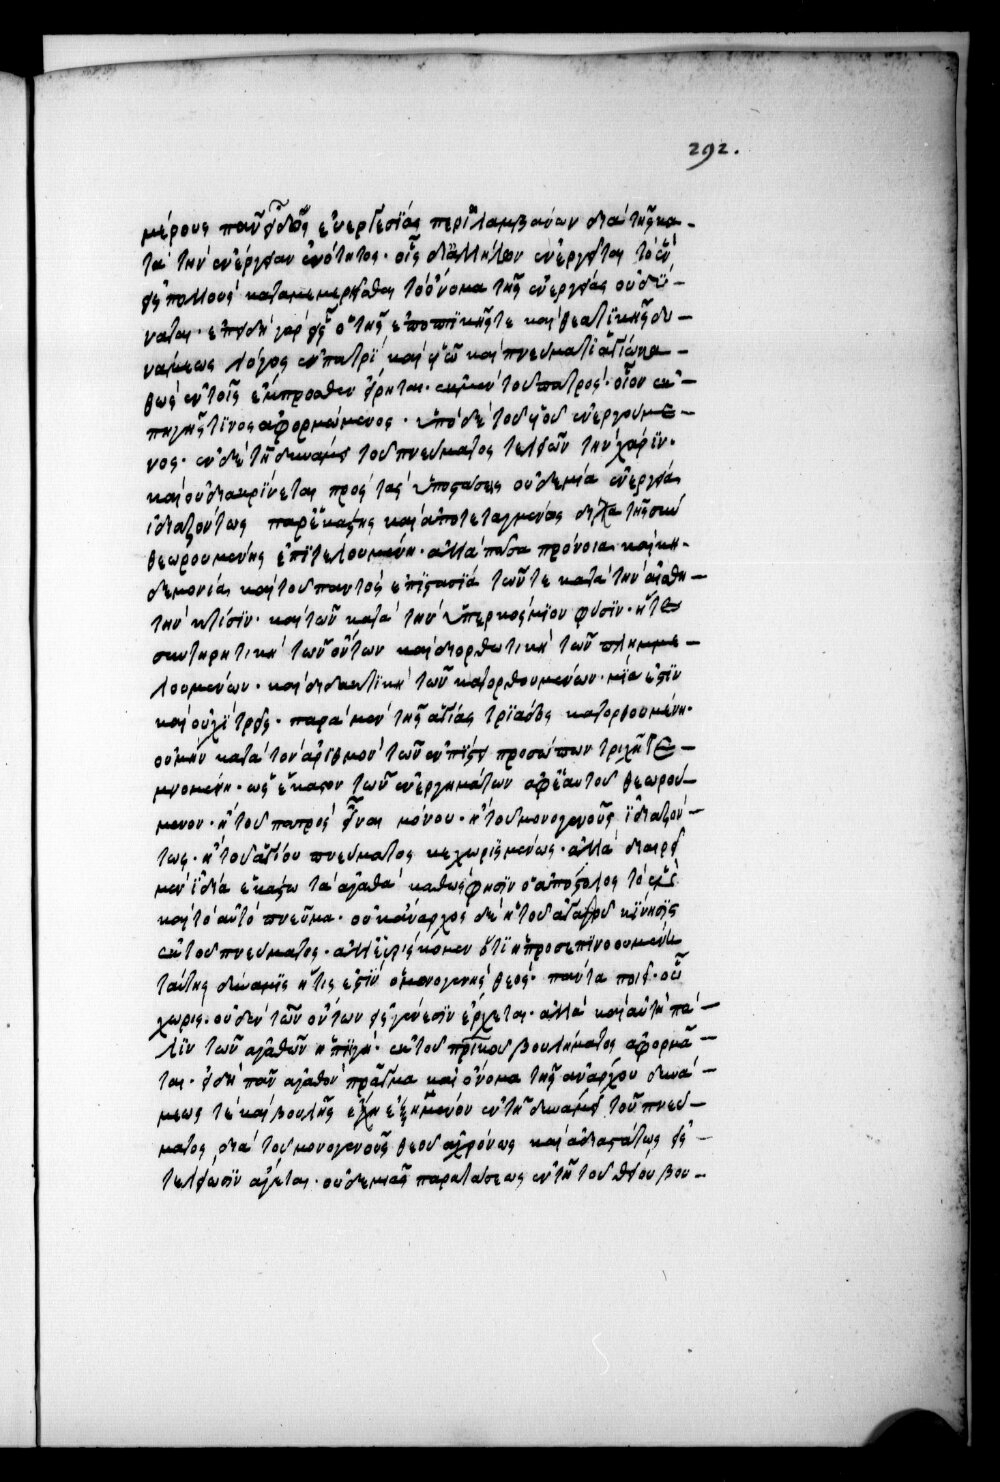 292.
μέρους πᾶν εἶδος ἐυεργεσίας περιλαμβανων διὰ τῆς κα-
τὰ τὴν ἐνέργειαν ἑνότητος· οἷς δι ἀλλήλων ἐνεργεῖται τὸ ἓν,
εἰς πολλοὺς καταμεμερίσθαι τὸ ὄνομα τῆς ἐνεργείας οὐ δύ-
ναται· ἐπειδὴ γὰρ εἷς ὁ τῆς ἐποπτικῆς τε καὶ θεατικῆς δυ-
νάμεως λόγος ἐν πατρὶ καὶ υἱῶ καὶ πνεύματι ἁγίω κα-
θὼς ἐν τοῖς ἔμπροσθεν εἴρηται· ἐκ μὲν τοῦ πατρὸς· οἷον ἐκ
πηγῆς τινος ἀφορμώμενος· ὑπὸ δὲ τοῦ υἱοῦ ἐνεργούμε-
νος· ἐν δὲ τῆ δυνάμει τοῦ πνεύματος τελειῶν τὴν χάριν·
καὶ οὐ διακρίνεται πρὸς τὰς ὑποστάσεις οὐδεμία ἐνέργεια
ἰδιαζόντως παρ ἑκάστης καὶ ἀποτεταγμένως δίχα τῆς συν
θεωρουμένης ἐπιτελουμένη· ἀλλὰ πᾶσα πρόνοια καὶ κη-
δεμονία καὶ τοῦ παντὸς ἐπιστασία τῶν τε κατὰ τὴν αἰσθη-
τὴν κτίσιν· καὶ τῶν κατὰ τὴν ὑπερκόσμιον φύσιν· ἥ τε
συντηρητικὴ τῶν ὄντων καὶ διορθωτικὴ τῶν πλημμε-
λουμένων· καὶ διδακτικὴ τῶν κατορθουμένων· μία ἐστὶν
καὶ οὐχὶ τρεῖς· παρὰ μὲν τῆς ἁγίας τριάδος κατορθουμένη·
οὐ μὴν κατὰ τὸν ἀριθμὸν τῶν ἐν πίστει προσώπων τριχῆ τε-
μνομένη· ὡς ἕκαστον τῶν ἐνεργημάτων ἐφ ἑαυτοῦ θεωρού-
μενον· ἢ τοῦ πατρὸς εἶναι μόνου· ἢ τοῦ μονογενοῦς ἰδιαζόν-
τως· ἢ τοῦ ἁγίου πνεύματος κεχωρισμένως· ἀλλὰ διαιρεῖ
μὲν ἰδία ἑκάστω τὰ ἀγαθὰ καθὼς φησιν ὁ ἀπόστολος τὸ ἓν
καὶ τὸ αὐτὸ πνεῦμα· οὐκ ἄναρχος δὲ ἡ τοῦ ἀγαθοῦ κίνησις
ἐκ τοῦ πνεύματος· ἀλλ εὑρίσκομεν ὅτι ἡ προσεπινοουμένη
ταύτης δύναμις ἥτις ἐστὶν ὁ μονογενὴς θεὸς· πάντα ποιεῖ· οὗ
χωρὶς· οὐδὲν τῶν ὄντων εἰς γένεσιν ἔρχεται· ἀλλὰ καὶ αὕτη πά-
λιν τῶν ἀγαθῶν ἡ πηγὴ· ἐκ τοῦ πρικοῦ βουλήματος ἀφορμᾶ-
ται· εἰ δὴ πᾶν ἀγαθὸν πρᾶγμα καὶ ὄνομα τῆς ἀνάρχου δυνά-
μεως τὲ καὶ βουλῆς ἐξημμένον ἐν τῆ δυνάμει τοῦ πνεύ-
ματος, διὰ τοῦ μονογενοῦς θεοῦ ἀχρόνως καὶ ἀδιαστάτως εἰς
τελείωσιν ἄγεται· οὐδεμιᾶς παρατάσεως ἐν τῆ τοῦ θείου βου-